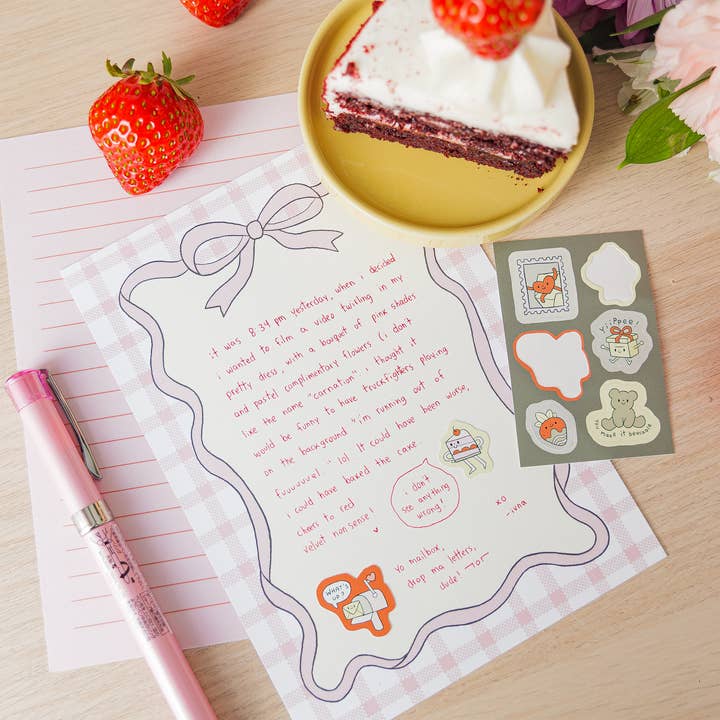 it was 8:34 pm yesterday, when i decided
i wanted to film a video twirling in my
pretty dress, with a bouquet of pink shades
and pastel complimentary flowers (i don't
like the name "carnation". i thought it
would be funny to have truckfighters playing
on the background "i'm running out of
fuuuuuuel." lol. It could have been worse,
i could have baked the cake.
cheers to red
velvet nonsense!
i don't
see anything
wrong!
xo
-ivna
WHAT'S
UP?
yo mailbox,
drop ma letters,
dude!
Yippee!
you make it bearable